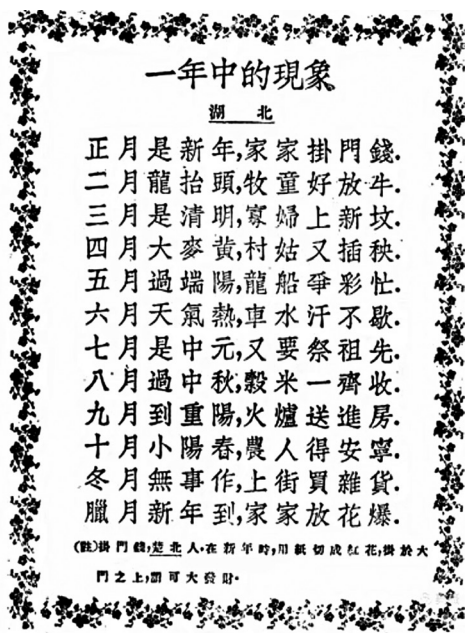 一年中的現象
湖北
正月是新年,家家掛門錢.
二月龍抬頭,牧童好放牛.
三月是清明,寡婦上新坟.
四月大麥黃,村姑又插秧.
五月過端陽,龍船爭彩忙.
六月天氣熱,車水汗不歇.
七月是中元,又要祭祖先.
八月過中秋,穀米一齊收.
九月到重陽,火爐送進房.
十月小陽春,農人得安寧.
冬月無事作,上街買雜貨.
臘月新年到,家家放花爆.
(註)掛門錢,楚北人.在新年時,用紙切成紅花,掛於大
門之上,謂可大發財.